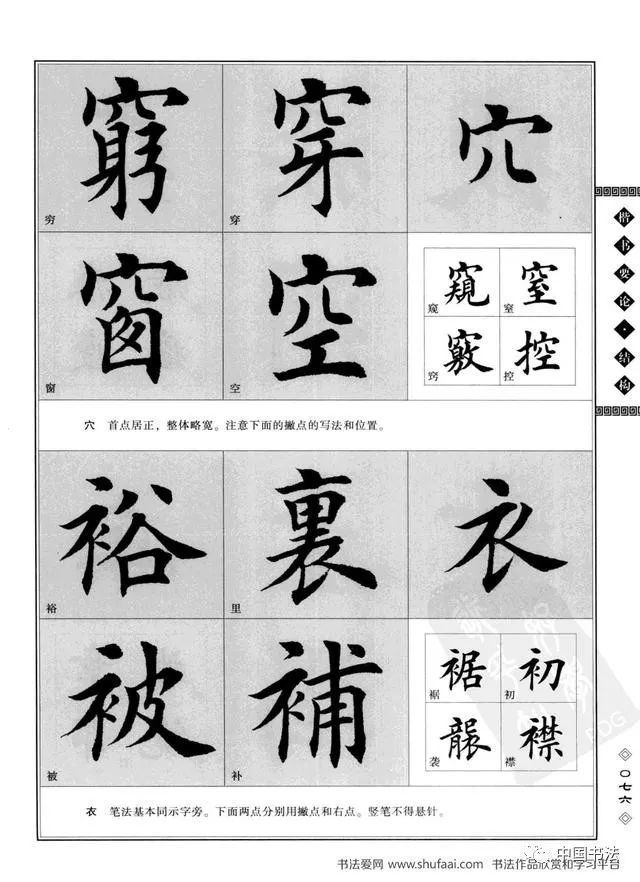 窮 穿 穴
穷 穿
窗 空
窗 空
窺 窒
窥 窒
竅 控
窍 控
穴 首点居正，整体略宽。注意下面的撇点的写法和位置。
裕 裏 衣
裕 里
被 補
被 补
裾 初
裾 初
襲 襟
袭 襟
衣 笔法基本同示字旁。下面两点分别用撇点和右点。竖笔不得悬针。
楷书要论·结构
〇七六
PDG
中国书法
书法爱网 www.shufaai.com 书法作品欣赏和学习平台